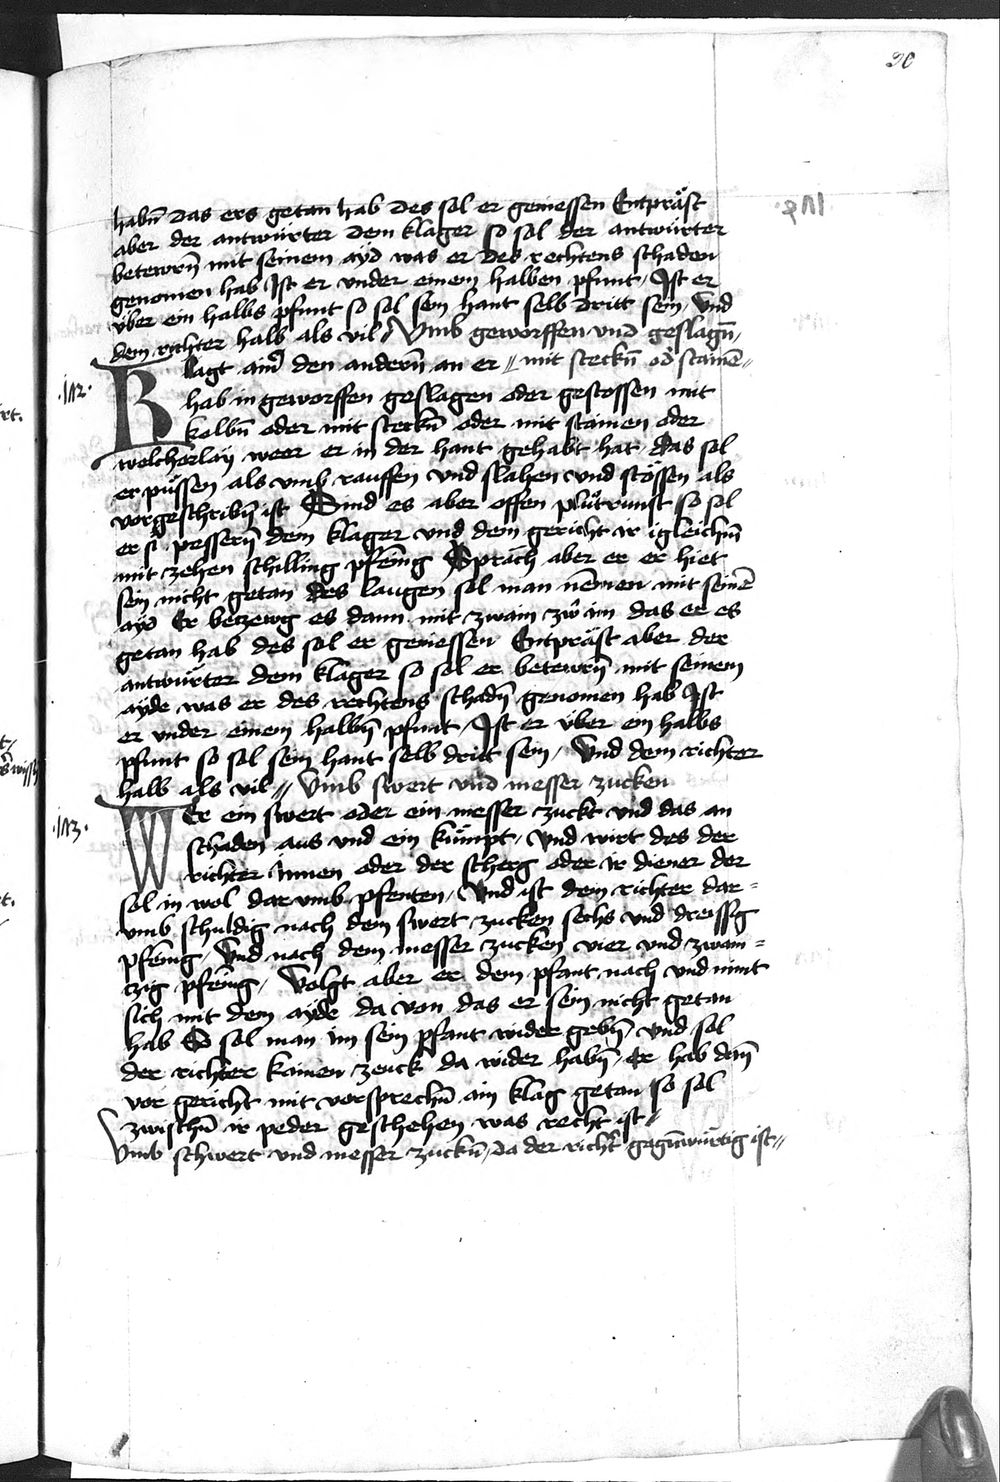 30
habn̄ das ers getan hab des sol er geniessen Entpräst
aber der antwurter dem klager so sol der antwürter
betewrn̄ mit seinem ayd was er des rechtens schaden
genomen hab Ist er vnder einem halben pfunt / Ist er
über ein halbs pfunt so sol sein hant selb dritt sein / Vnd
dem richter halb als vil // Vmb geworffen vnd geslagn̄ /
Klagt aīn den andern̄ an er // mit steckn̄ od̄ stainē //
·112·
hab in geworffen geslagen oder gestossen mit
kolbn̄ oder mit steckn̄ oder mit stainen oder
welcherlay weer er in der hant gehabt hat das sol
er püssen als vmb rauffen vnd slahen vnd stössen als
vorgeschribn̄ ist Sind es aber offen plutrunst so sol
er si pessern̄ dem klager vnd dem gericht ir igleichm̄
mit zehen schilling pfēnig Sprach aber er er hiet
sein nicht getan des laugen sol man nēmen mit seinē
ayd Er betzewg es dann mit zwain zw im das er es
getan hab des sol er geniessen Entpräst aber der
antwürter dem klager so sol er betewrn̄ mit seinem
ayde was er des rechtens schadn̄ genomen hab Ist
er vnder einem halbn̄ pfunt / Ist er über ein halbs
pfunt so sol sein hant selb dritt sein / Vnd dem richter
halb als vil // Vmb swert vnd messer zucken
·113·
Wer ein swert oder ein messer zuckt vnd das an
schaden aus vnd ein kümpt / Vnd wirt des der
richter Innen oder der scherg oder ir diener der
sol in wol dar vmb pfenten / Vnd ist dem richter dar=
vmb schuldig nach dem swert zucken sechs vnd dreissig
pfēnig / Vnd nach dem messer zucken vier vnd zwain=
czig pfēnig / Volgt aber er dem pfant nach vnd nimt
sich mit dem ayde da von das er sein nicht getan
hab So sol man im sein pfant wider gebn̄ vnd sol
der richter kainen zeuck da wider habn̄ / Er hab dan̄
vor gericht mit vorsprechn̄ ain klag getan so sol
zwischn̄ ir peder geschehen was recht ist /
Vmb schwert vnd messer zuckn̄ / da der richt̄ gegn̄würtig ist //